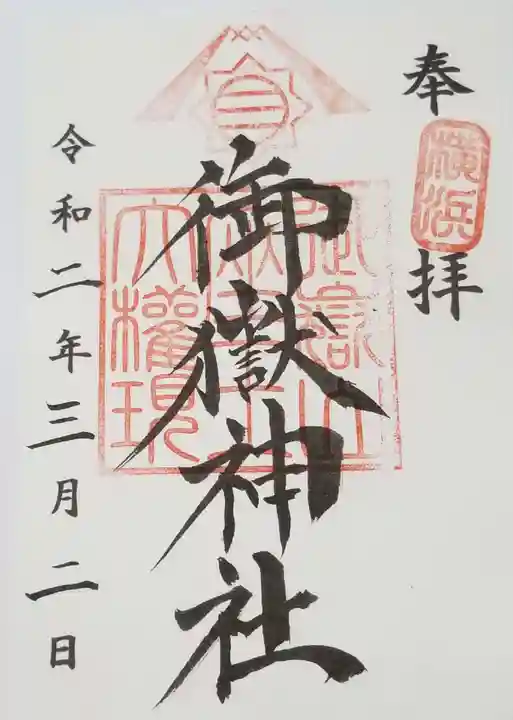 奉拝
横浜
御嶽神社
大權現
令和二年三月二日